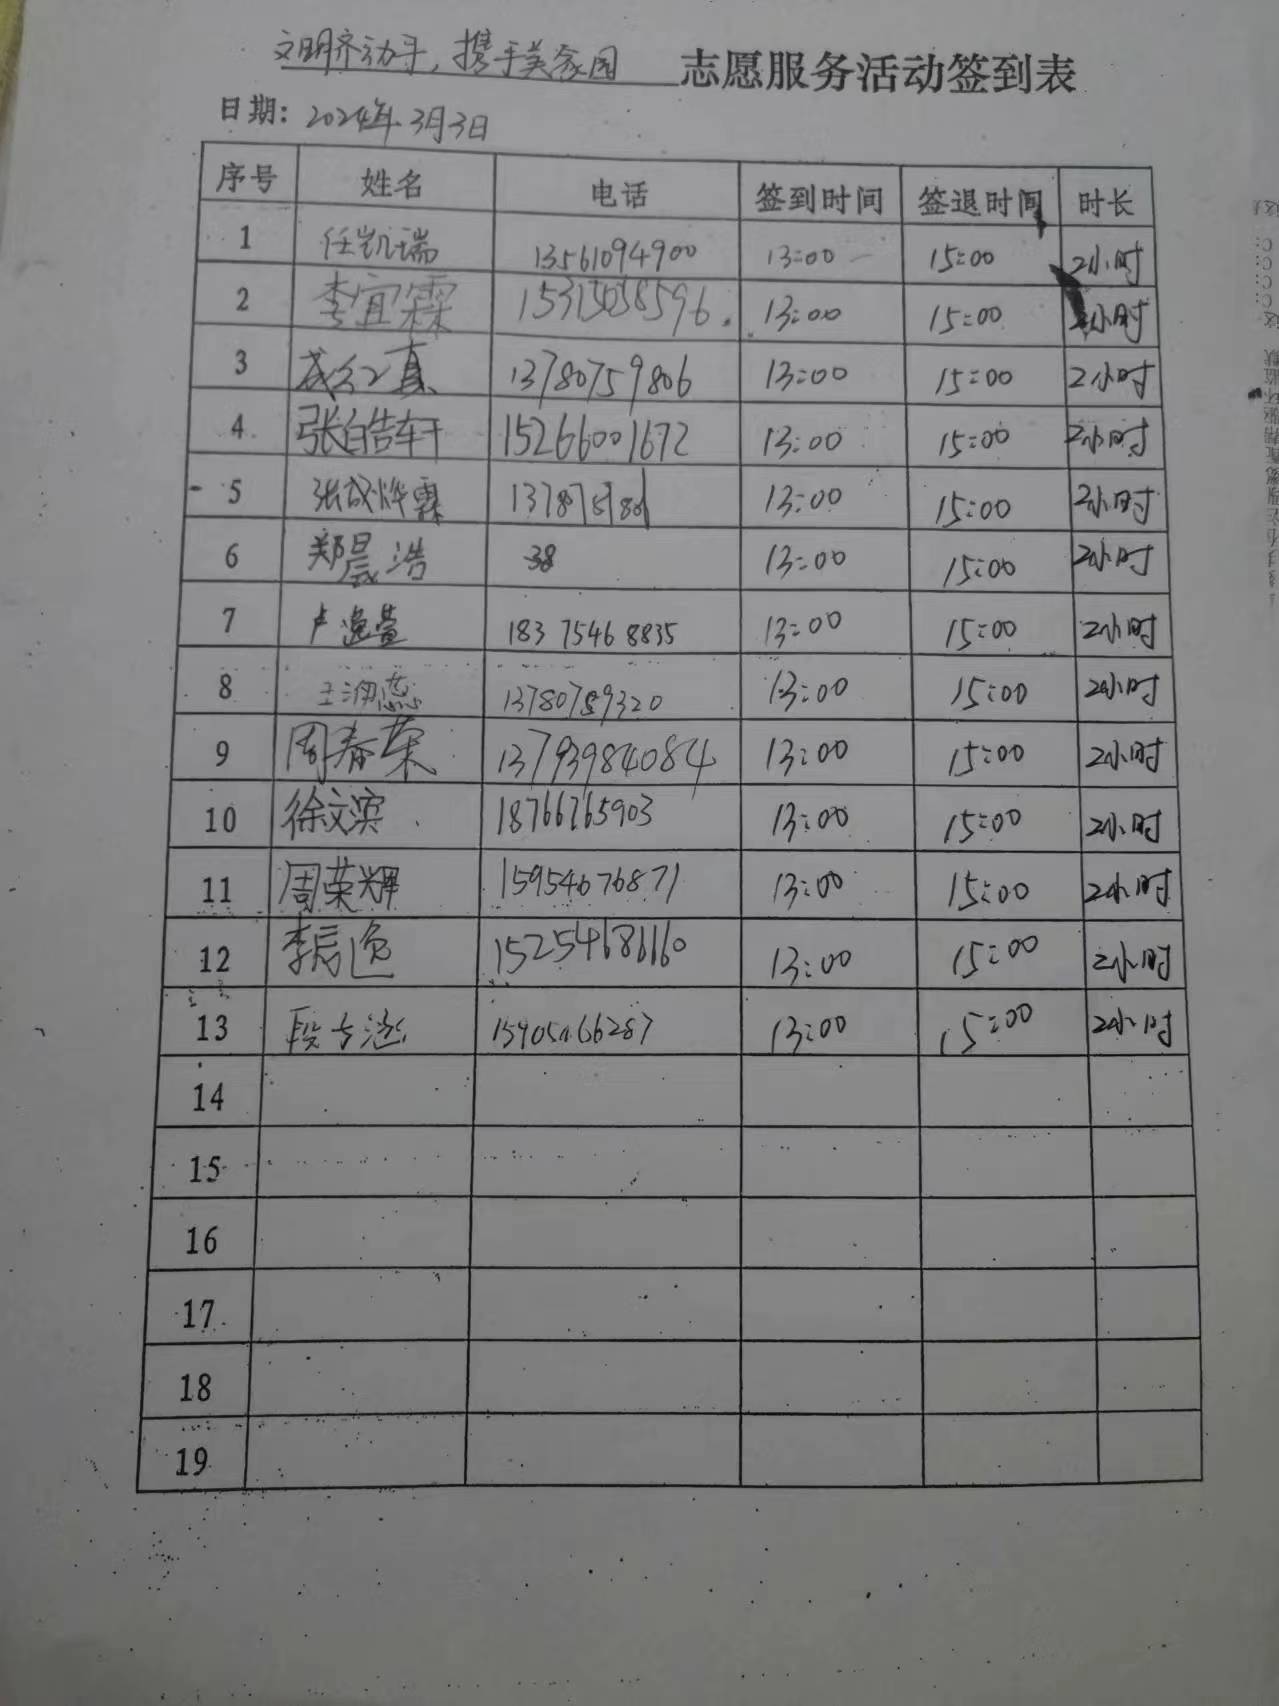 文明齐动手，携手美家园 志愿服务活动签到表
日期：2024年3月3日
序号 姓名 电话 签到时间 签退时间 时长
1 任凯瑞 13561094900 13:00 15:00 2小时
2 李宜霖 15315038596 13:00 15:00 2小时
3 13780759806 13:00 15:00 2小时
4 张皓轩 15266001672 13:00 15:00 2小时
5 张成烨霖 13:00 15:00 2小时
6 郑晨浩 38 13:00 15:00 2小时
7 卢逸萱 183 7546 8835 13:00 15:00 2小时
8 13780759320 13:00 15:00 2小时
9 周春荣 13793984084 13:00 15:00 2小时
10 徐文滨 18766765903 13:00 15:00 2小时
11 周荣辉 15954676871 13:00 15:00 2小时
12 李辰逸 15254686160 13:00 15:00 2小时
13 13:00 15:00 2小时
14
15
16
17
18
19